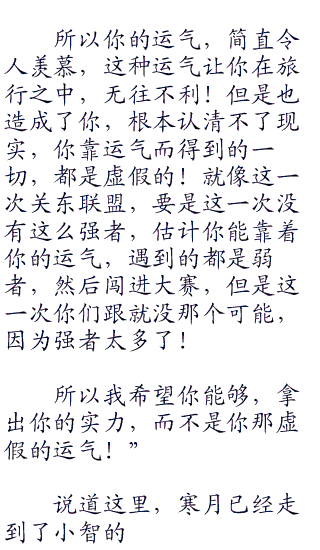 所以你的运气，简直令
人羡慕，这种运气让你在旅
行之中，无往不利！但是也
造成了你，根本认清不了现
实，你靠运气而得到的一
切，都是虚假的！就像这一
次关东联盟，要是这一次没
有这么强者，估计你能靠着
你的运气，遇到的都是弱
者，然后闯进大赛，但是这
一次你们跟就没那个可能，
因为强者太多了！
所以我希望你能够，拿
出你的实力，而不是你那虚
假的运气！”
说道这里，寒月已经走
到了小智的